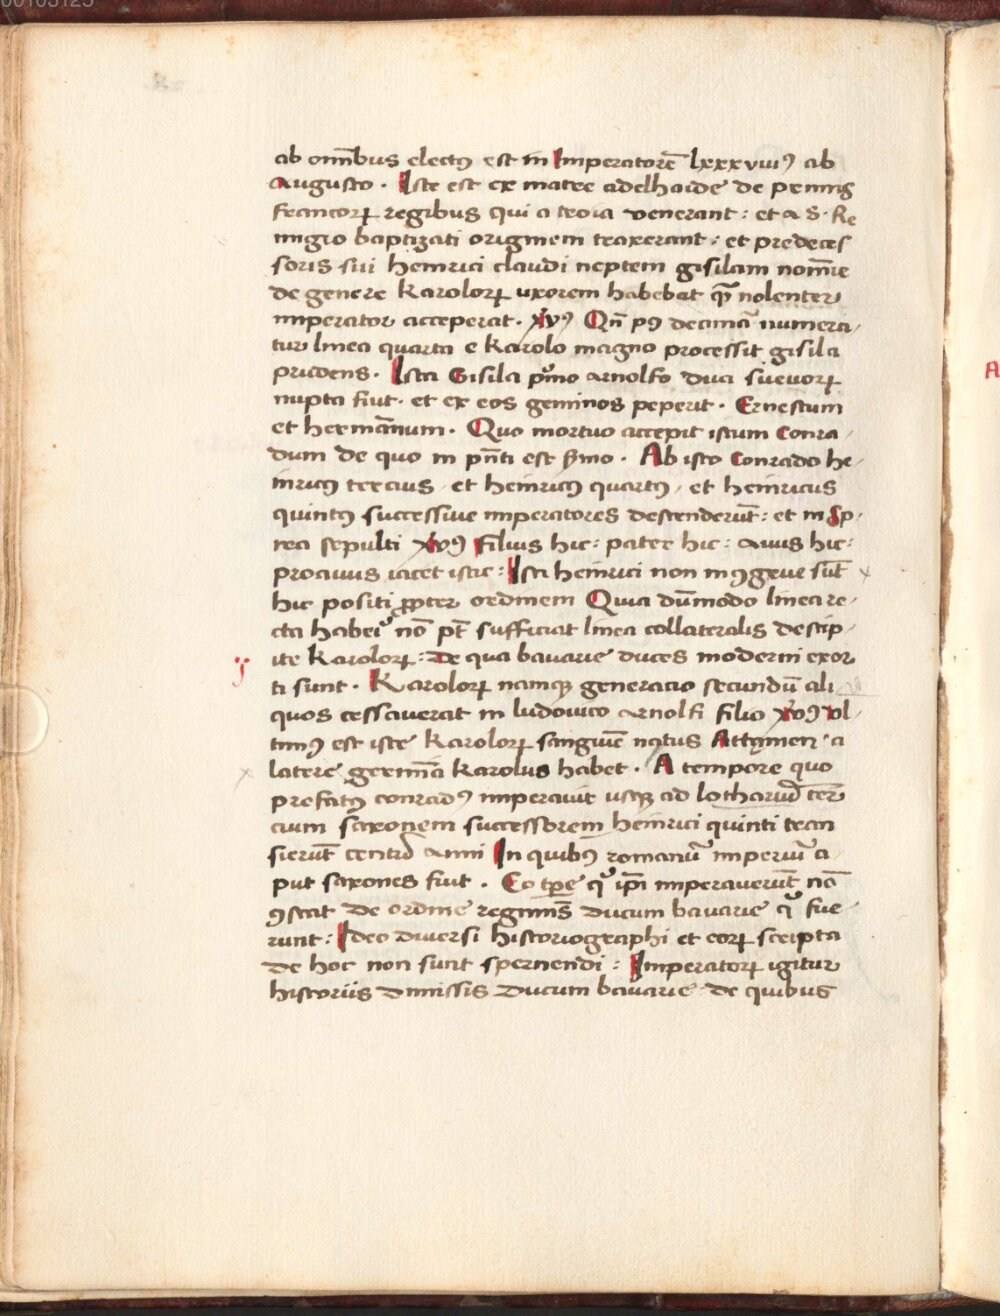 ab om̄ibus electꝰ est in Imperatorē lxxxviiiꝰ ab
Augusto . Iste est ex matre adelhaide de prinnis
francoꝝ regibus qui a troia venerant : et a S . Re
migio baptizati originem traxerant : et predeces
soris sui heinrici claudi neptem gisilam nomīe
de genere Karoloꝝ uxorem habebat quā nolenter
imperator acceperat . Qn̄ pꝰ decimā numera
tur linea quarta e Karolo magno processit gisila
prudens . Ista Gisila pͥmo arnolfo duci suevoꝝ
nupta fuit . et ex eos geminos peperit . Ernestum
et hermānum . Quo mortuo accepit istum Conra
dum de quo in pn̄ti est ẜmo . Ab isto Conrado he
inricꝰ tercius . et heinricꝰ quartꝰ , et heinricus
quintꝰ successiue imperatores descenderūt : et in Sp
rea sepulti Filius hic : pater hic : auus hic :
proauus iacet istic : Isti heinrici non incꝯgrue sūt
hic positi ꝓpter ordinem Quia dūmodo linea re
cta haberi nō pt̄ sufficiat linea collateralis de stip
ite Karoloꝝ : De qua bauarie duces moderni exor
ti sunt . Karoloꝝ namqꝫ generacio secundū ali
quos cessauerat in ludouico arnolfi filio vl
timꝰ est iste Karoloꝝ sanguīe natus Attamen a
latere germā Karolus habet . A tempore quo
prefatꝰ conradꝰ imperauit usqꝫ ad lothariū ter
cium saxonem successorem heinrici quinti tran
sierūt centū anni In quibꝰ romanū imperiū a
put saxones fuit . Eo tꝑe qͦ ip̄i imperauerūt nō
ꝯstat de ordine regiminis ducum bauarie qͥ fue
runt : Ideo diuersi historiographi et eoꝝ scripta
de hoc non sunt spernendi : Imperatoꝝ igitur
historiis dimissis Ducum bauarie de quibus